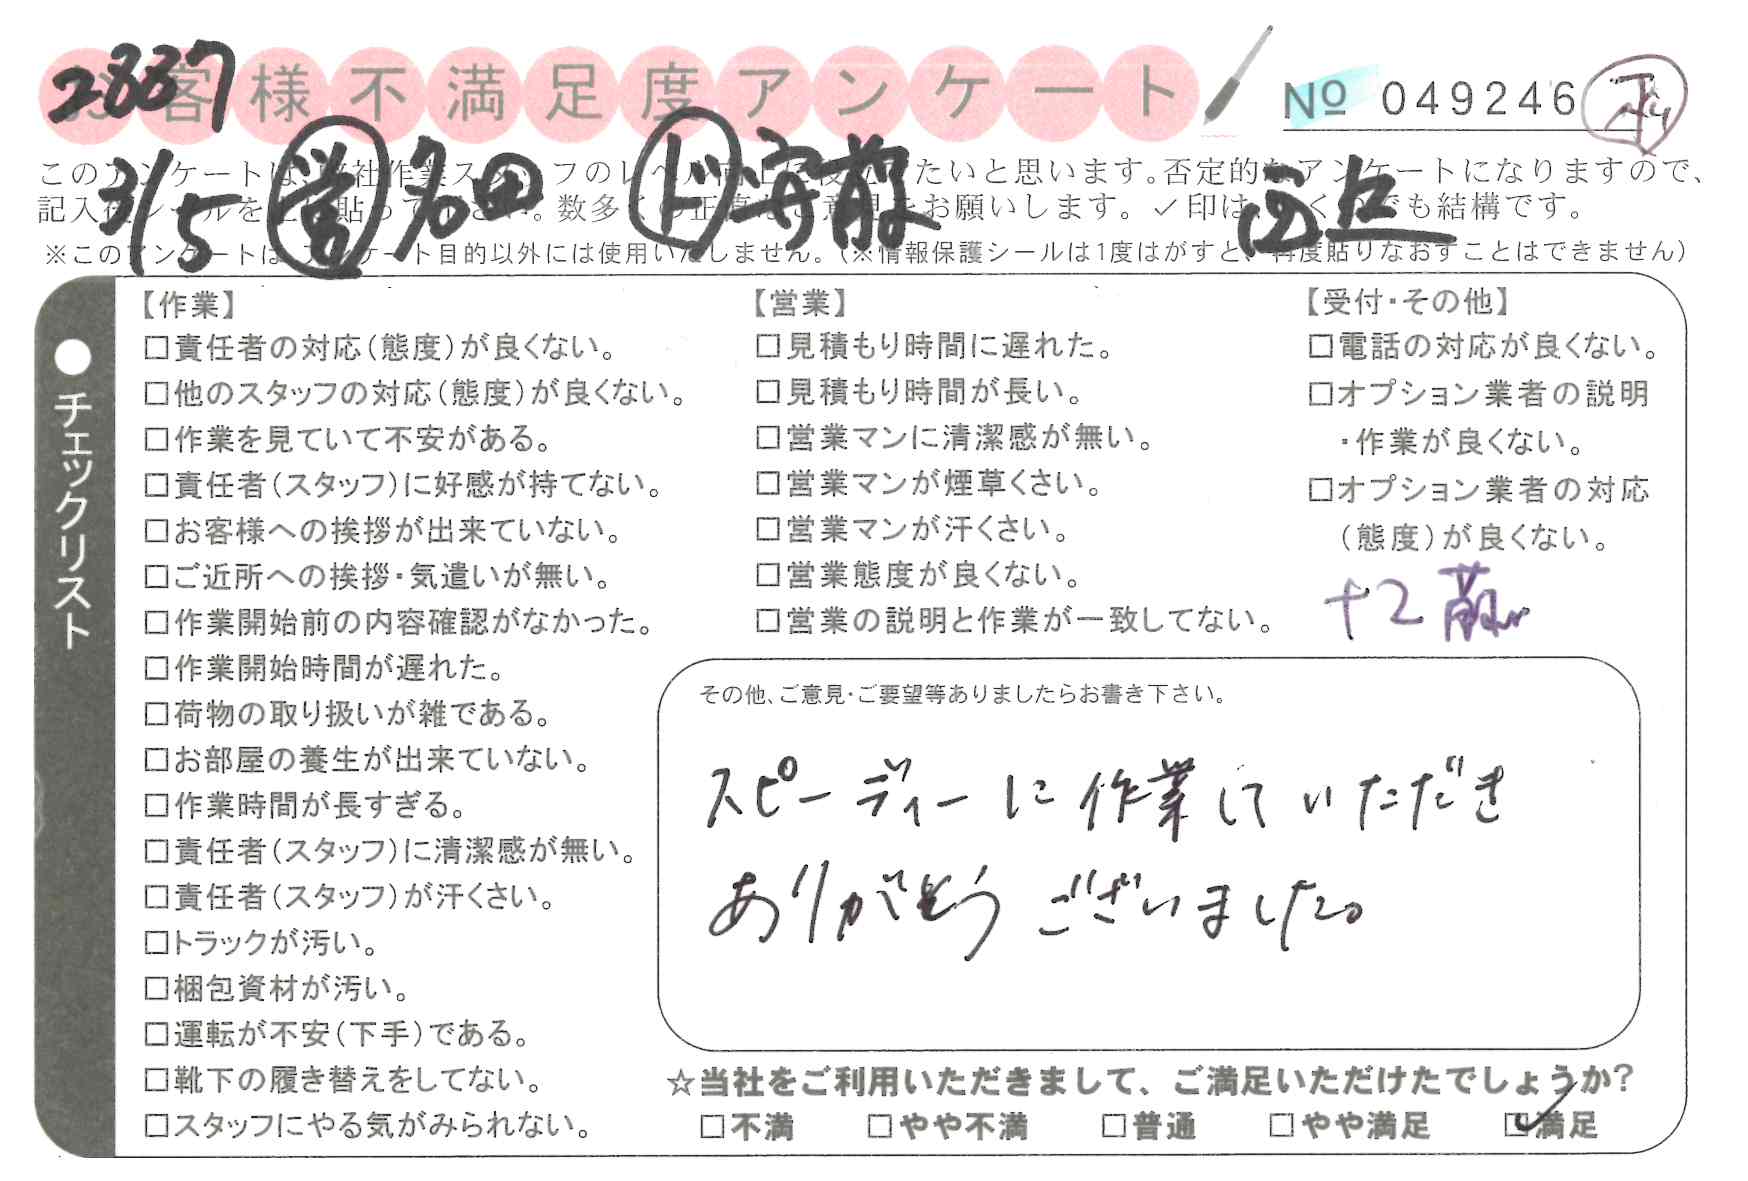 2887
お客様不満足度アンケート
№ 049246
3/5 営 名田 ト 守藤
このアンケートは、弊社作業スタッフのレベル向上に役立てたいと思います。否定的なアンケートになりますので、
記入後シールを上に貼って下さい。数多くの正直なご意見をお願いします。✓印は、いくつでも結構です。
※このアンケートは、アンケート目的以外には使用いたしません。(※情報保護シールは1度はがすと、再度貼りなおすことはできません)
●チェックリスト
【作業】
□責任者の対応(態度)が良くない。
□他のスタッフの対応(態度)が良くない。
□作業を見ていて不安がある。
□責任者(スタッフ)に好感が持てない。
□お客様への挨拶が出来ていない。
□ご近所への挨拶・気遣いが無い。
□作業開始前の内容確認がなかった。
□作業開始時間が遅れた。
□荷物の取り扱いが雑である。
□お部屋の養生が出来ていない。
□作業時間が長すぎる。
□責任者(スタッフ)に清潔感が無い。
□責任者(スタッフ)が汗くさい。
□トラックが汚い。
□梱包資材が汚い。
□運転が不安(下手)である。
□靴下の履き替えをしてない。
□スタッフにやる気がみられない。
【営業】
□見積もり時間に遅れた。
□見積もり時間が長い。
□営業マンに清潔感が無い。
□営業マンが煙草くさい。
□営業マンが汗くさい。
□営業態度が良くない。
□営業の説明と作業が一致してない。
【受付・その他】
□電話の対応が良くない。
□オプション業者の説明
・作業が良くない。
□オプション業者の対応
(態度)が良くない。
その他、ご意見・ご要望等ありましたらお書き下さい。
スピーディーに作業していただき
ありがとうございました。
☆当社をご利用いただきまして、ご満足いただけたでしょうか?
□不満 □やや不満 □普通 □やや満足 ☑満足